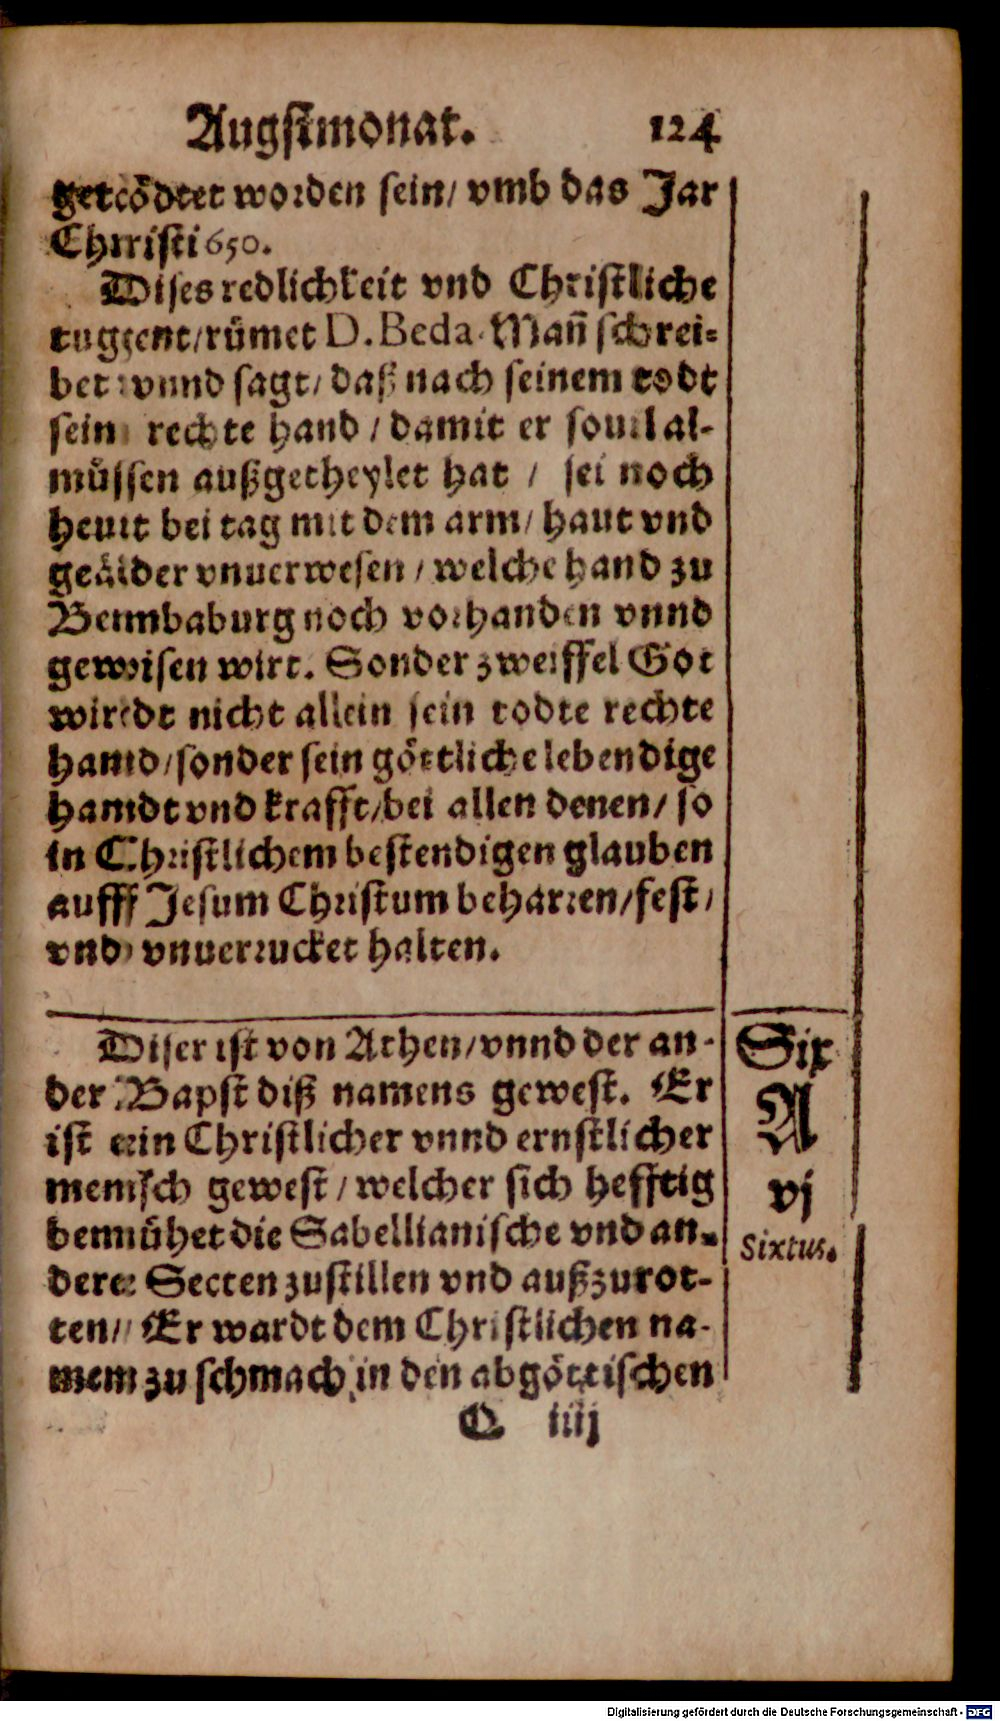 Augstmonat. 124
getödtet worden sein / vmb das Jar
Christi 650.
Dises redlichkeit vnd Christliche
tugent / rümet D. Beda. Mañ schrei-
bet vnnd sagt / daß nach seinem todt
sein rechte hand / damit er souil al-
müssen außgetheylet hat / sei noch
heut bei tag mit dem arm / haut vnd
geäider vnuerwesen / welche hand zu
Bembaburg noch vorhanden vnnd
gewisen wirt. Sonder zweiffel Got
wirdt nicht allein sein todte rechte
hand / sonder sein göttliche lebendige
handt vnd krafft / bei allen denen / so
in Christlichem bestendigen glauben
auff Jesum Christum beharren / fest /
vnd vnuerrucket halten.
Diser ist von Athen / vnnd der an-
der Bapst diß namens gewest. Er
ist ein Christlicher vnnd ernstlicher
mensch gewest / welcher sich hefftig
bemühet die Sabellianische vnd an-
dere Secten zustillen vnd außzurot-
ten / Er wardt dem Christlichen na-
men zu schmach in den abgöttischen
Six
A
vj
Sixtus.
Q iiij
Digitalisierung gefördert durch die Deutsche Forschungsgemeinschaft - DFG